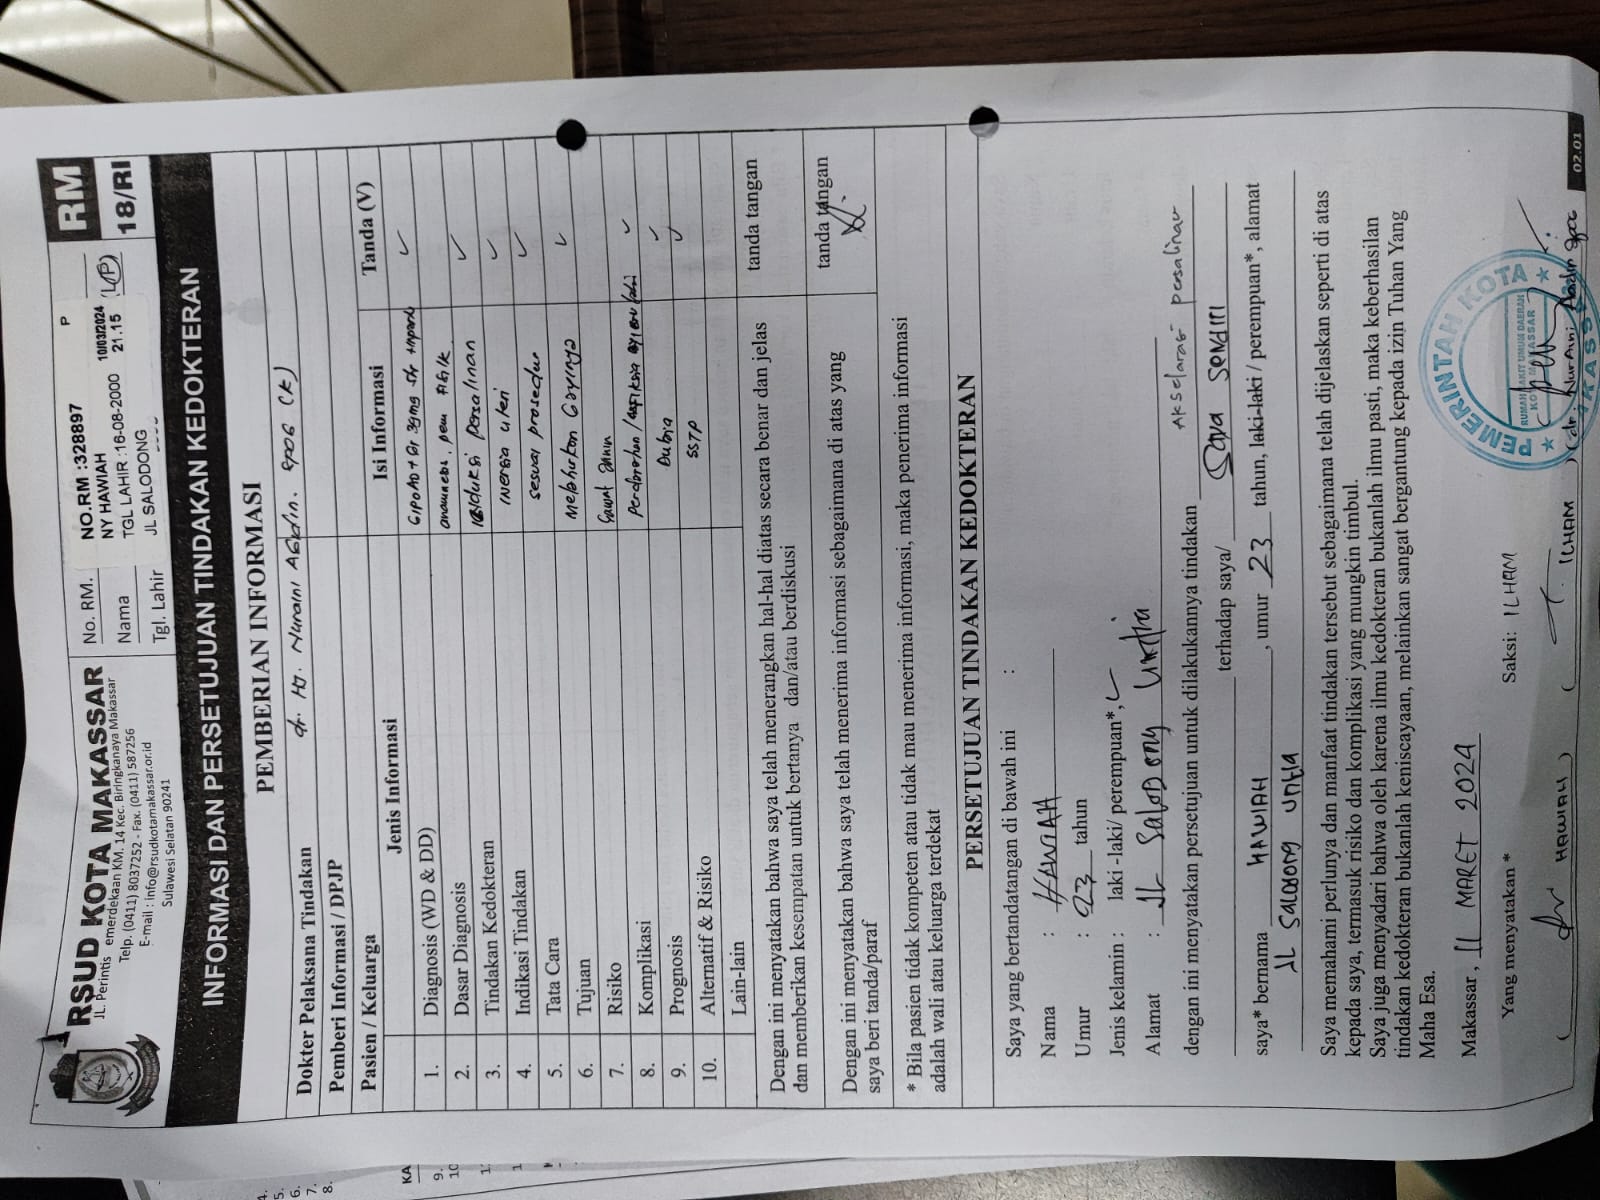 RSUD KOTA MAKASSAR
JL. Perintis emerdekaan KM. 14 Kec. Biringkanaya Makassar
Telp. (0411) 8037252 - Fax. (0411) 587256
E-mail : info@rsudkotamakassar.or.id
Sulawesi Selatan 90241
No. RM. NO.RM :328897 P
Nama NY HAWIAH 10/03/2024 (L/P)
Tgl. Lahir TGL LAHIR :16-08-2000 21.15
JL SALODONG
RM
18/RI
INFORMASI DAN PERSETUJUAN TINDAKAN KEDOKTERAN
PEMBERIAN INFORMASI
Dokter Pelaksana Tindakan dr. Hj. Nuraini Abidin. SpOG (K)
Pemberi Informasi / DPJP
Pasien / Keluarga
Jenis Informasi Isi Informasi Tanda (V)
1. Diagnosis (WD & DD) G1P0A0 + Gr ✓
2. Dasar Diagnosis anamnesa, pem Fisik ✓
3. Tindakan Kedokteran Induksi persalinan ✓
4. Indikasi Tindakan Inersia uteri ✓
5. Tata Cara sesuai prosedur ✓
6. Tujuan Melahirkan bayinya
7. Risiko Gawat Janin ✓
8. Komplikasi Perdarahan / asfiksia ✓
9. Prognosis Dubia ✓
10. Alternatif & Risiko SSTP
Lain-lain
Dengan ini menyatakan bahwa saya telah menerangkan hal-hal diatas secara benar dan jelas tanda tangan
dan memberikan kesempatan untuk bertanya dan/atau berdiskusi
Dengan ini menyatakan bahwa saya telah menerima informasi sebagaimana di atas yang tanda tangan
saya beri tanda/paraf
* Bila pasien tidak kompeten atau tidak mau menerima informasi, maka penerima informasi
adalah wali atau keluarga terdekat
PERSETUJUAN TINDAKAN KEDOKTERAN
Saya yang bertandatangan di bawah ini :
Nama : HAWIAH
Umur : 23 tahun
Jenis kelamin : laki -laki/ perempuan*, ✓
Alamat : JL SALODONG Untia
dengan ini menyatakan persetujuan untuk dilakukannya tindakan Akselarasi persalinan
terhadap saya/ Saya SENDIRI
saya* bernama HAWIAH , umur 23 tahun, laki-laki / perempuan*, alamat
JL SALODONG UNTIA
Saya memahami perlunya dan manfaat tindakan tersebut sebagaimana telah dijelaskan seperti di atas
kepada saya, termasuk risiko dan komplikasi yang mungkin timbul.
Saya juga menyadari bahwa oleh karena ilmu kedokteran bukanlah ilmu pasti, maka keberhasilan
tindakan kedokteran bukanlah keniscayaan, melainkan sangat bergantung kepada izin Tuhan Yang
Maha Esa.
Makassar, 11 MARET 2024
Yang menyatakan * Saksi: ILHAM
PEMERINTAH KOTA
RUMAH SAKIT UMUM DAERAH
KOTA MAKASSAR
MAKASSAR
( HAWIAH ) ( ILHAM ) (dr. Nuraini Abidin SpOG
02.01
KA
4.
5.
6.
7.
8.
9.